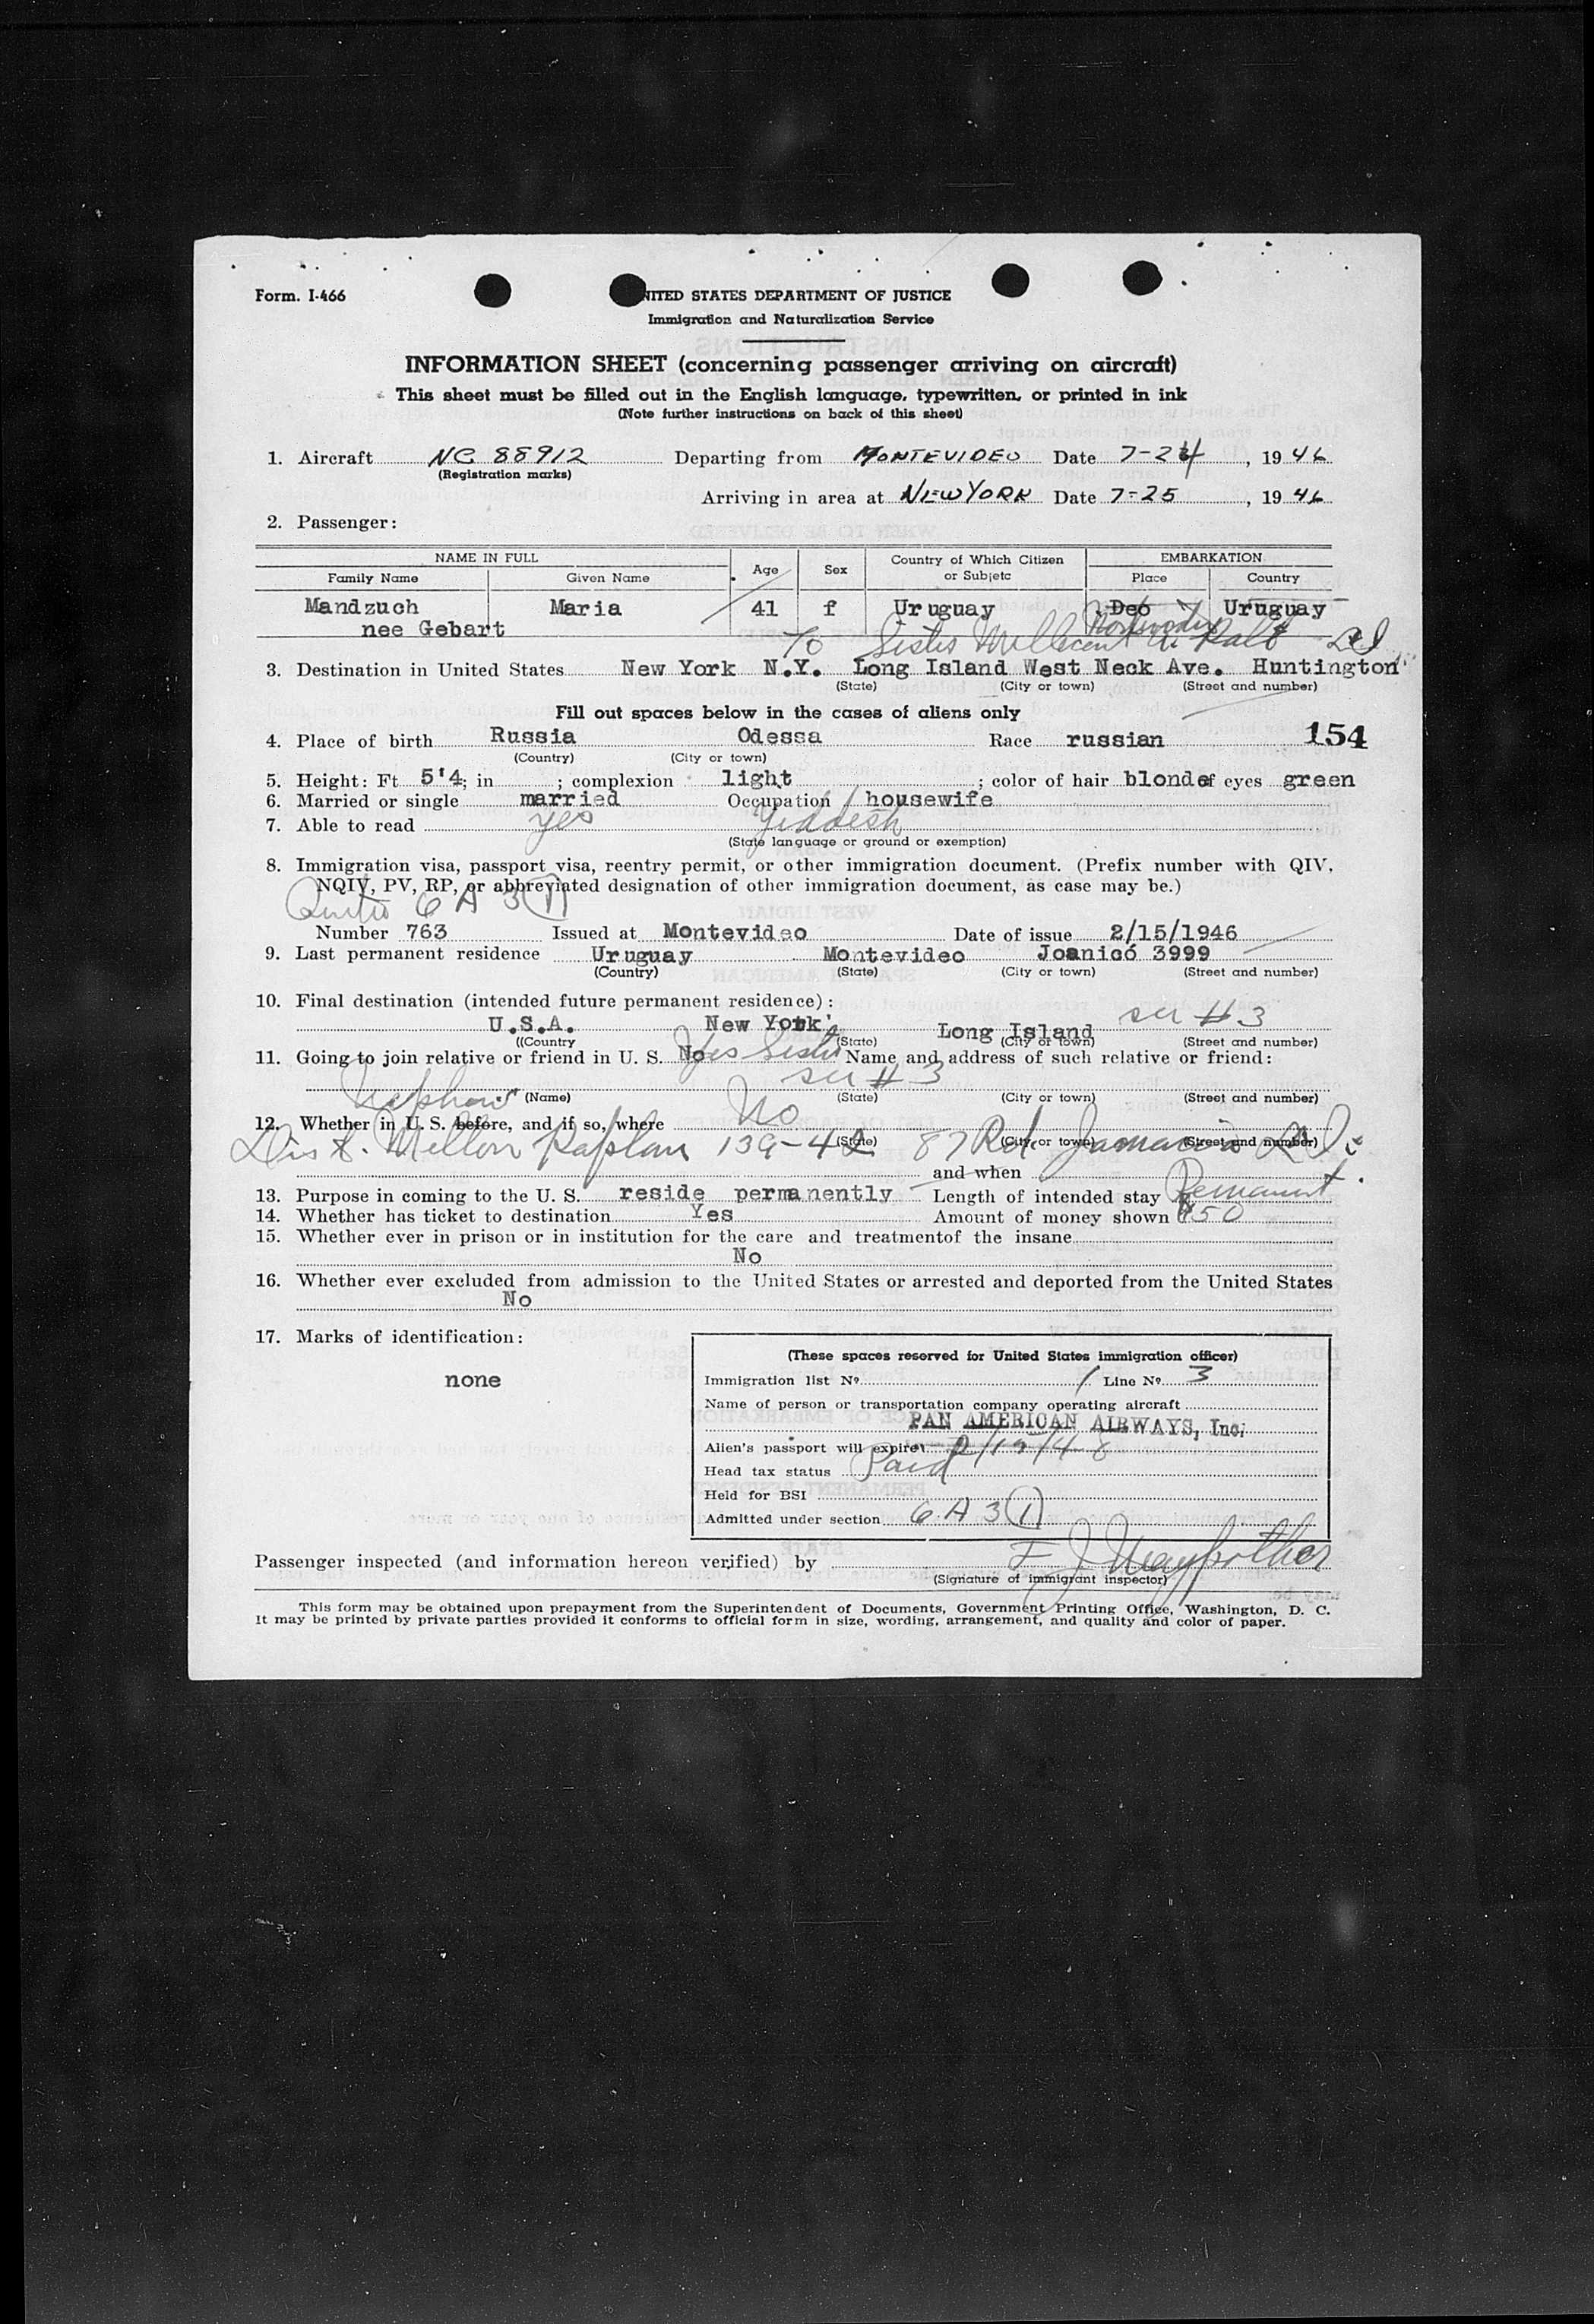 Form. I-466
UNITED STATES DEPARTMENT OF JUSTICE
Immigration and Naturalization Service
INFORMATION SHEET (concerning passenger arriving on aircraft)
This sheet must be filled out in the English language, typewritten, or printed in ink
(Note further instructions on back of this sheet)
1. Aircraft NC 88912 Departing from MONTEVIDEO Date 7-24, 1946
(Registration marks)
Arriving in area at NEW YORK Date 7-25, 1946
2. Passenger:
NAME IN FULL Age Sex Country of Which Citizen or Subjetc EMBARKATION
Family Name Given Name Place Country
Mandzuch Maria 41 f Uruguay Deo Uruguay
nee Gebart Montevideo
To Sister
3. Destination in United States New York N.Y. Long Island West Neck Ave. Huntington
(State) (City or town) (Street and number)
Fill out spaces below in the cases of aliens only
4. Place of birth Russia Odessa Race russian 154
(Country) (City or town)
5. Height: Ft 5'4; in ; complexion light ; color of hair blonde of eyes green
6. Married or single married Occupation housewife
7. Able to read yes Yiddesh
(State language or ground or exemption)
8. Immigration visa, passport visa, reentry permit, or other immigration document. (Prefix number with QIV,
NQIV, PV, RP, or abbreviated designation of other immigration document, as case may be.)
6 A 3 (1)
Number 763 Issued at Montevideo Date of issue 2/15/1946
9. Last permanent residence Uruguay Montevideo Joanicó 3999
(Country) (State) (City or town) (Street and number)
10. Final destination (intended future permanent residence):
U.S.A. New York Long Island see # 3
((Country (State) (City or town) (Street and number)
11. Going to join relative or friend in U. S. No Yes Sister Name and address of such relative or friend:
see # 3
Nephew (Name) (State) (City or town) (Street and number)
12. Whether in U. S. before, and if so, where No
(State) (City or town) (Street and number)
Kaplan 139-42 87 Rd. Jamaica L I
and when
13. Purpose in coming to the U. S. reside permanently Length of intended stay Permanent.
14. Whether has ticket to destination Yes Amount of money shown $50
15. Whether ever in prison or in institution for the care and treatmentof the insane
No
16. Whether ever excluded from admission to the United States or arrested and deported from the United States
No
17. Marks of identification:
none
(These spaces reserved for United States immigration officer)
Immigration list Nº 1 Line Nº 3
Name of person or transportation company operating aircraft
PAN AMERICAN AIRWAYS, Inc.
Alien's passport will expire 2/19/48
Head tax status Paid
Held for BSI
Admitted under section 6 A 3 (1)
Passenger inspected (and information hereon verified) by F J
(Signature of immigrant inspector)
This form may be obtained upon prepayment from the Superintendent of Documents, Government Printing Office, Washington, D. C.
It may be printed by private parties provided it conforms to official form in size, wording, arrangement, and quality and color of paper.